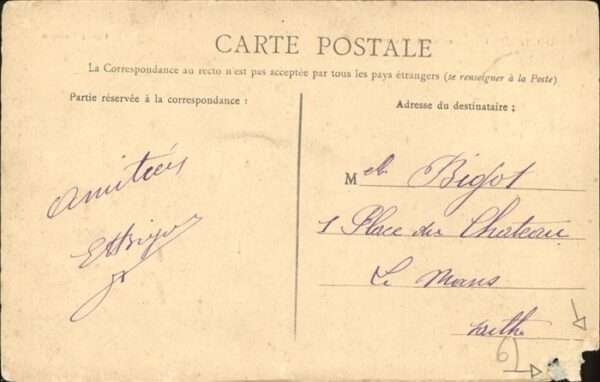 CARTE POSTALE
La Correspondance au recto n'est pas acceptée par tous les pays étrangers (se renseigner à la Poste)
Partie réservée à la correspondance :
Adresse du destinataire ;
Amitiées
Melle Bigot
1 Place du Chateau
Le Mans
Sarthe